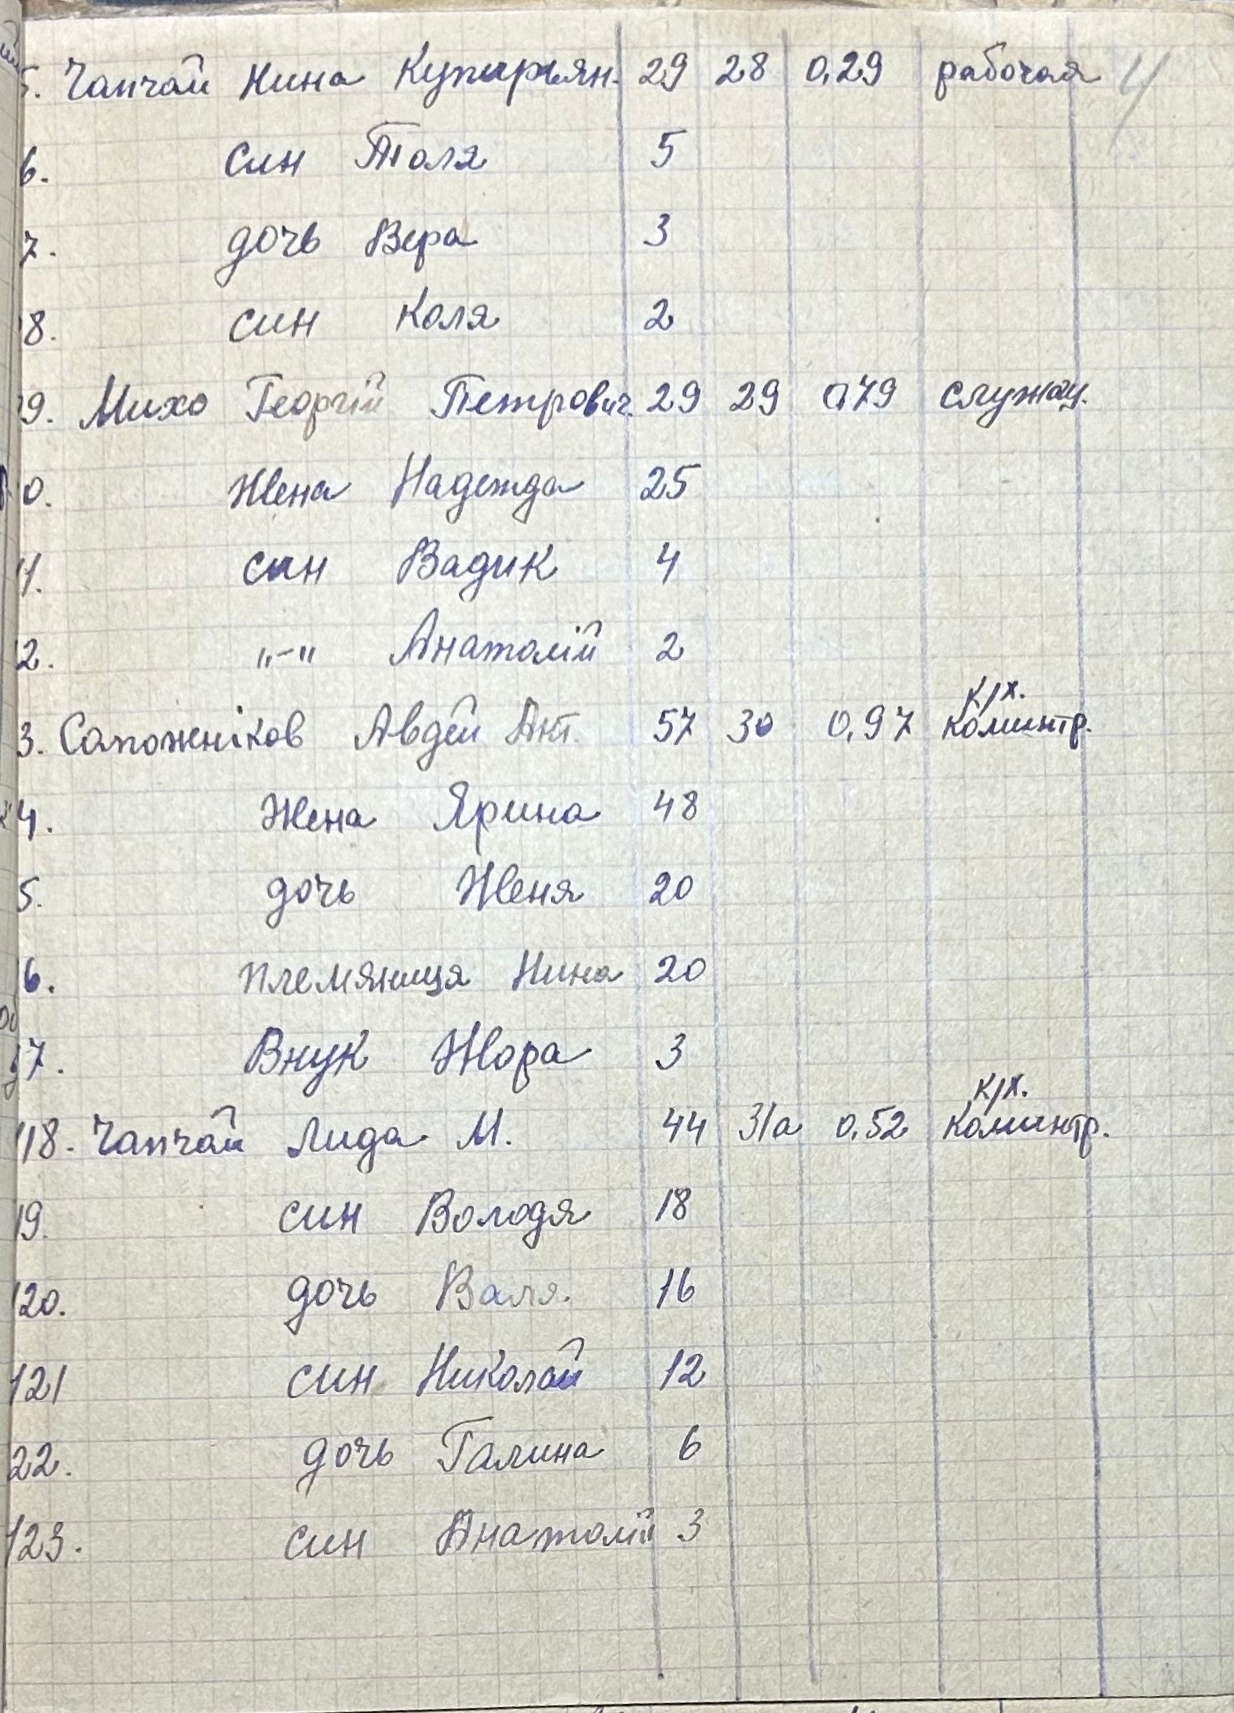 5. Чапчай Нина Куприян. 29 28 0,29 рабочая 4
6. син Толя 5
7. дочь Вера 3
8. син Коля 2
9. Михо Георгій Петрович. 29 29 0,79 служащ.
0. Жена Надежда 25
11. син Вадик 4
2. "-" Анатолій 2
к/х.
3. Сапожніков Авдей Ант. 57 30 0,97 Коминтр.
4. Жена Ярина 48
5. дочь Женя 20
6. племяниця Нина 20
17. Внук Жора 3
к/х.
118. Чапчай Лида М. 44 31а 0,52 Коминтр.
19. син Володя 18
120. дочь Валя. 16
121 син Николай 12
22. дочь Галина 6
123. син Анатолій 3